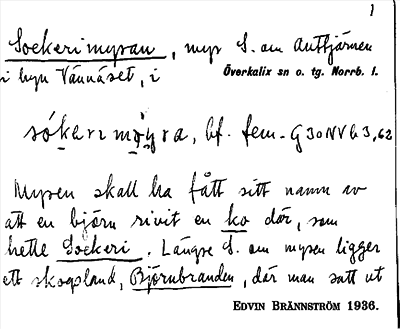 1
Sockerimyran, myr S. om Auttjärnen
i byn Vännäset, i
Överkalix sn o. tg. Norrb. l.
bf. fem. G30NVh3,62
Myren skall ha fått sitt namn av
att en björn rivit en ko där, som
hette Sockeri. Längre S. om myren ligger
ett skogsland, Björnbranden, där man satt ut
EDVIN BRÄNNSTRÖM 1936.